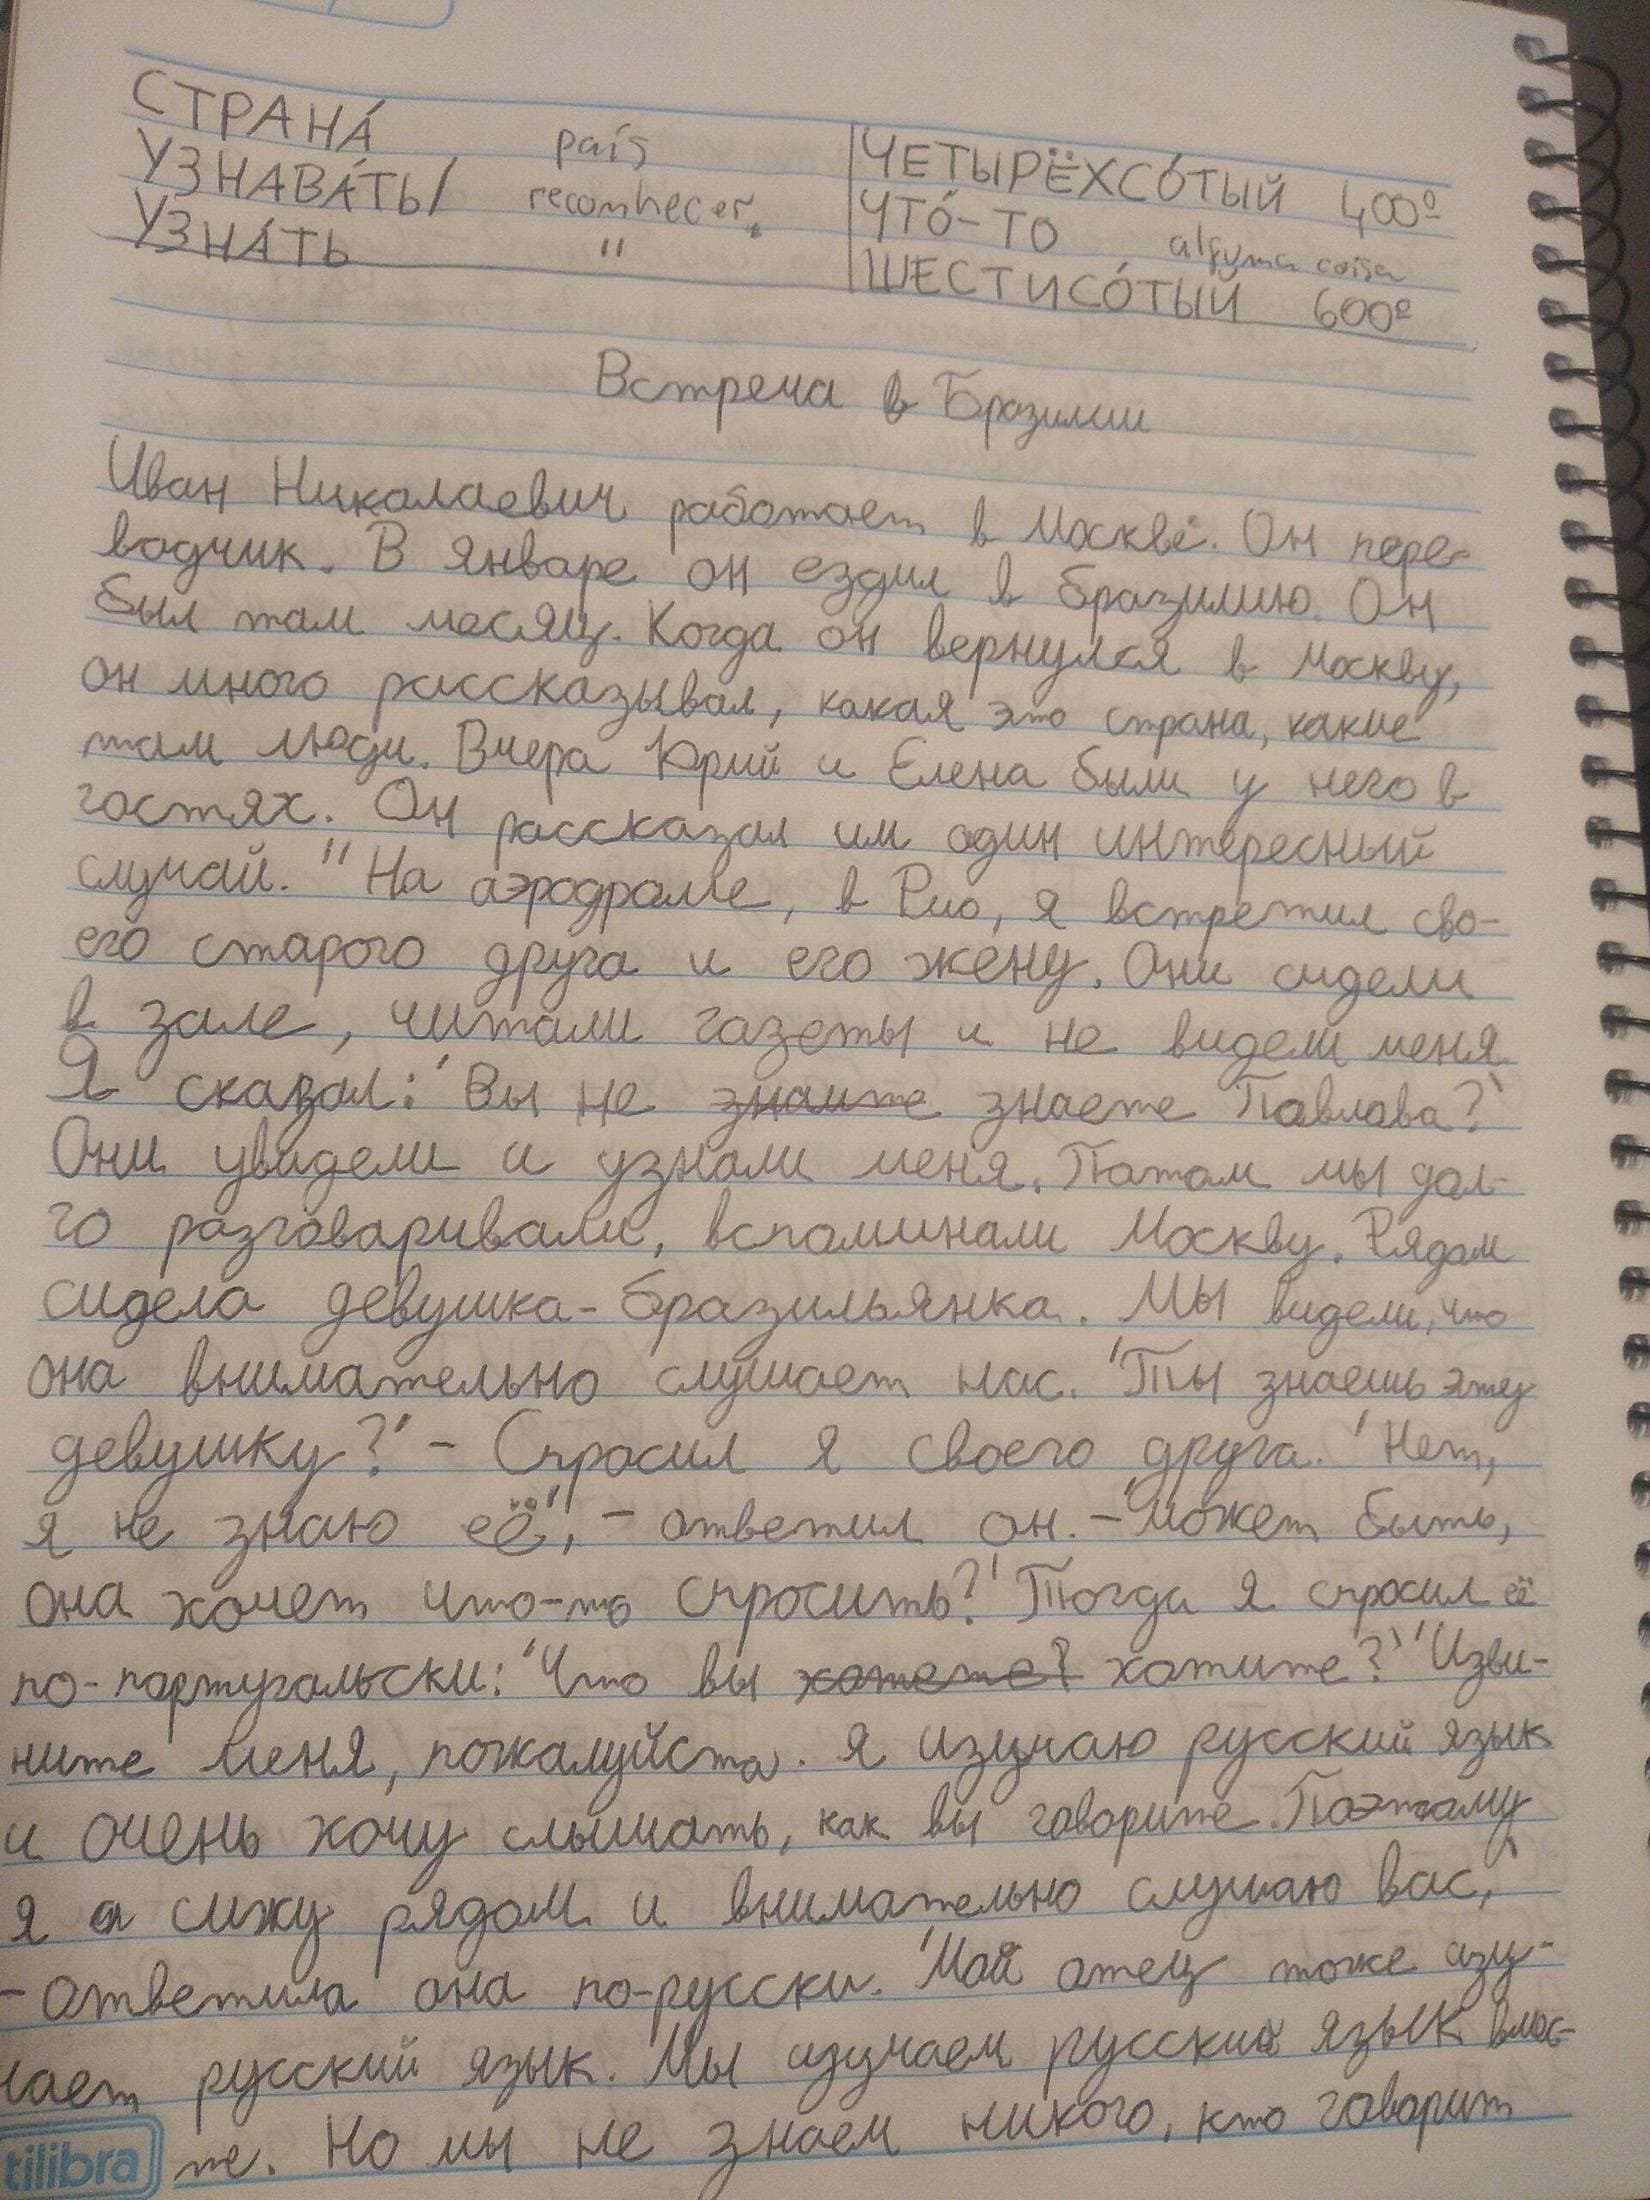 СТРАНА́ país
УЗНАВА́ТЬ/ reconhecer
УЗНА́ТЬ "
ЧЕТЫРЁХСО́ТЫЙ 400º
ЧТО́-ТО alguma coisa
ШЕСТИСО́ТЫЙ 600º
Встреча в Бразилии
Иван Николаевич работает в Москве. Он пере-
водчик. В январе он ездил в Бразилию. Он
был там месяц. Когда он вернулся в Москву,
он много рассказывал, какая это страна, какие
там люди. Вчера Юрий и Елена были у него в
гостях. Он рассказал им один интересный
случай. "На аэродроме, в Рио, я встретил сво-
его старого друга и его жену. Они сидели
в зале, читали газеты и не видели меня
Я сказал: 'Вы не знаите знаете Павлова?'
Они увидели и узнали меня. Потом мы дол-
го разговаривали, вспоминали Москву. Рядом
сидела девушка-бразильянка. Мы видели, что
она внимательно слушает нас. 'Ты знаешь эту
девушку?' - Спросил я своего друга. 'Нет,
я не знаю её', - ответил он. - 'Может быть,
она хочет что-то спросить?' Тогда я спросил её
по-португальски: 'Что вы хотете? хотите?' 'Изви-
ните меня, пожалуйста. Я изучаю русский язык
и очень хочу слышать, как вы говорите. Поэтому
я сижу рядом и внимательно слушаю вас,'
- ответила она по-русски. 'Мой отец тоже изу-
чает русский язык. Мы изучаем русский язык вмес-
те. Но мы не знаем никого, кто говорит
tilibra